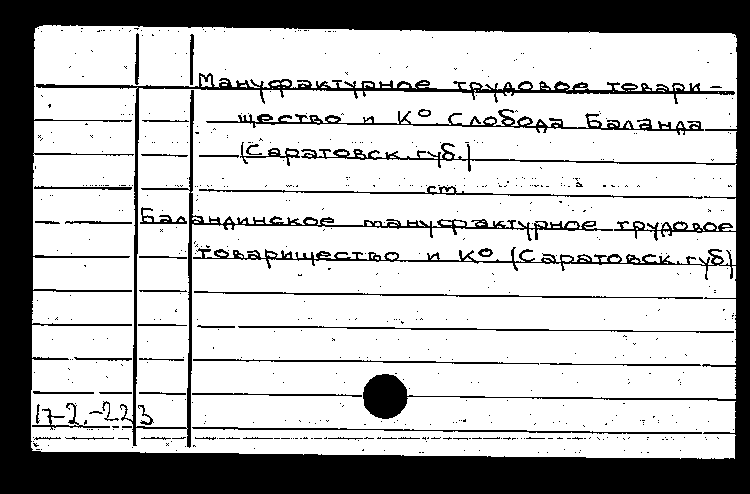 Мануфактурное трудовое товари-
щество и Ко Слобода Баланда
(Саратовск. губ.)
ст.
Баландинское мануфактурное трудовое
товарищество и Ко. (Саратовск. губ)
17-2.-223